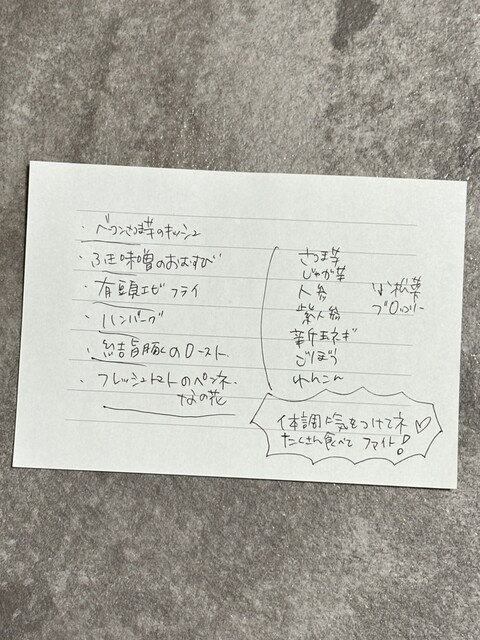 ・ベーコンさつま芋のキッシュ
・ふき味噌のおむすび
・有頭エビフライ
・ハンバーグ
・結旨豚のロースト
・フレッシュトマトのペンネ
なの花
さつま芋
じゃが芋
人参
紫人参
新玉ネギ
ごぼう
れんこん
小松菜
ブロッコリー
体調に気をつけてネ♡
たくさん食べて ファイト!